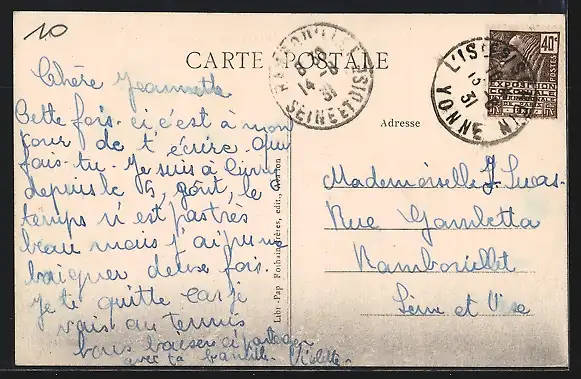 10
CARTE POSTALE
Chère Jeannette
Cette fois-ci c'est à mon
tour de t'écrire. Que
fais-tu. Je suis à
depuis le 5, août, le
temps n'est pas très
beau mais j'ai pu me
baigner deux fois.
Je te quitte car je
vais au tennis
bons baisers à partager
avec ta famille. Violette
Libr.-Pap Forhain frères, édit., Avallon
RAMBOUILLET
14 - 8
31
SEINE ET OISE
L'ISLE
13
31
YONNE
40c
POSTES
EXPOSITION
COLONIALE
INTERNATIONALE
PARIS 1931
Adresse
Mademoiselle J. Lucas
Rue Gambetta
Rambouillet
Seine et Oise